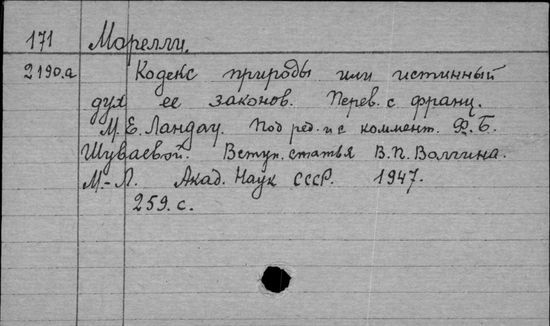 171 Морелли.
2190.а Кодекс природы или истинный
дух ее законов. Перев. с франц.
М.Е. Ландау. Под ред. и с коммент. Ф.Б.
Шуваевой. Вступ. статья В.П. Волгина.
М.-Л. Акад. Наук СССР. 1947.
259. с.